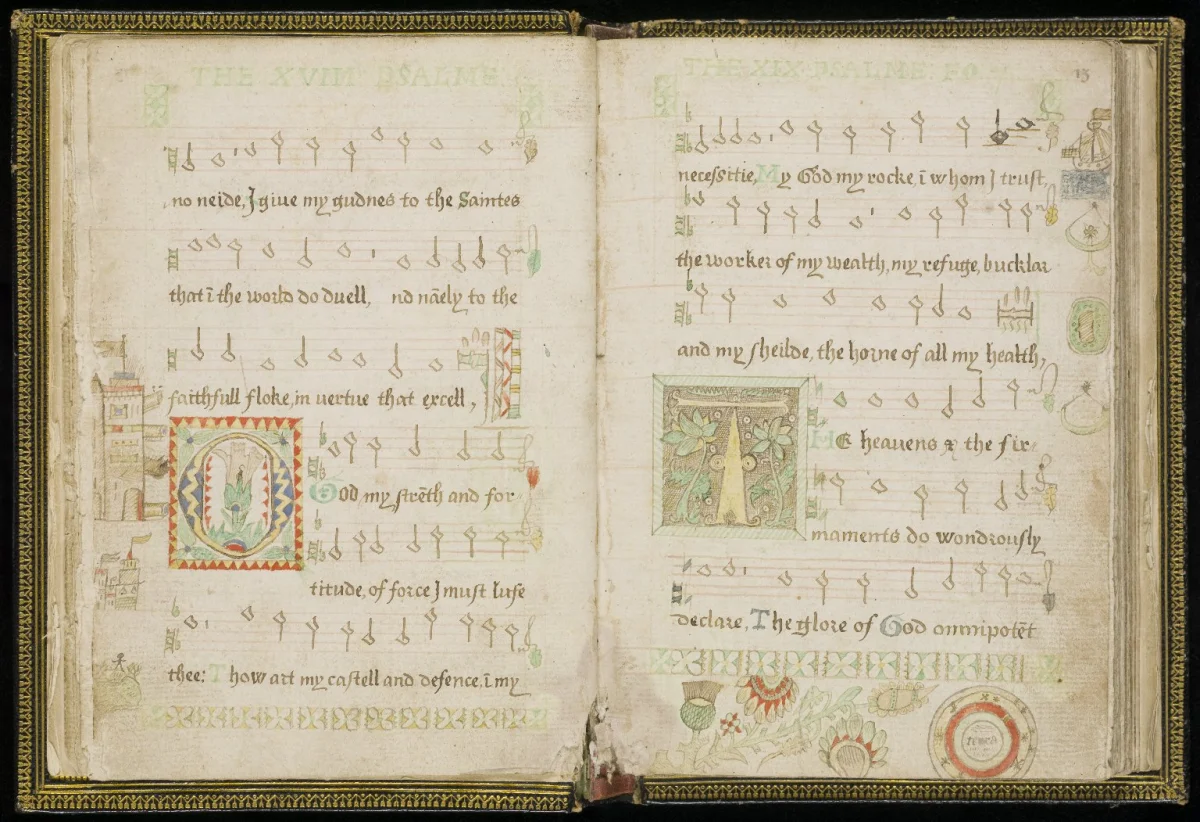 THE XVIII PSALME
no neide, I giue my gudnes to the Saintes
that ī the world do duell, nd nāely to the
faithfull floke, in vertue that excell,
O God my strēth and for
titude, of force I must lufe
thee: Thow art my castell and defence, ī my
THE XIX PSALME FO
13
necessitie, My God my rocke, ī whom I trust,
the worker of my wealth, my refuge, bucklar
and my sheilde, the horne of all my health,
THE heavens & the fir
maments do wondrously
declare, The glore of God omnipotēt